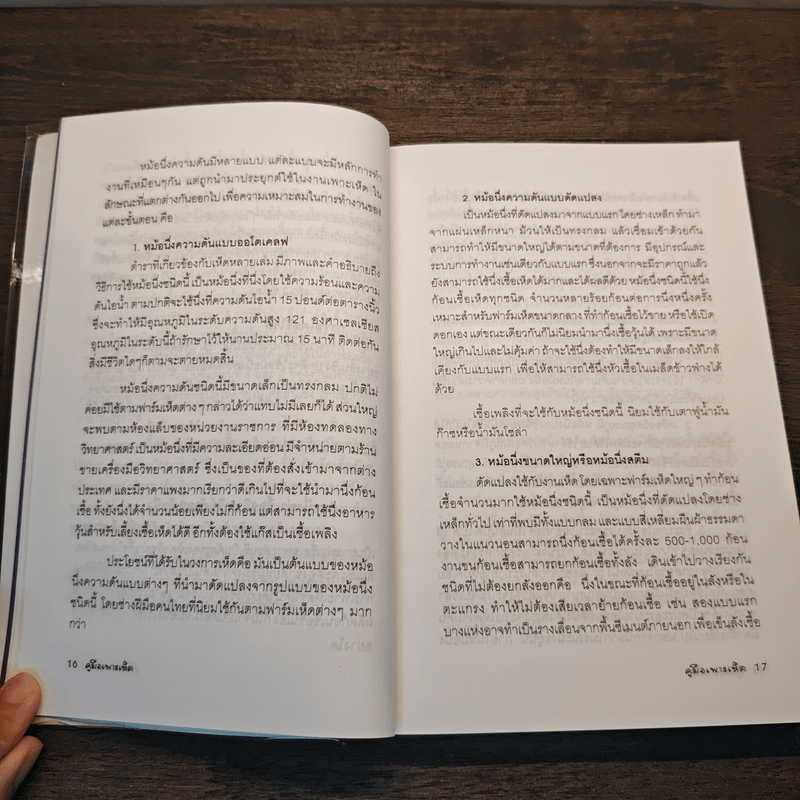 หม้อนึ่งความดันมีหลายแบบ แต่ละแบบจะมีหลักการทำ
งานที่เหมือนๆกัน แต่ถูกนำมาประยุกต์ใช้ในงานเพาะเห็ด ใน
ลักษณะที่แตกต่างกันออกไป เพื่อความเหมาะสมในการทำงานของ
แต่ละขั้นตอน คือ
1. หม้อนึ่งความดันแบบออโตเคลฟ
ตำราที่เกี่ยวข้องกับเห็ดหลายเล่ม มีภาพและคำอธิบายถึง
วิธีการใช้หม้อนึ่งชนิดนี้ เป็นหม้อนึ่งที่นึ่งโดยใช้ความร้อนและความ
ดันไอน้ำ ตามปกติจะใช้นึ่งที่ความดันไอน้ำ 15 ปอนด์ต่อตารางนิ้ว
ซึ่งจะทำให้มีอุณหภูมิในระดับความดันสูง 121 องศาเซลเซียส
อุณหภูมิในระดับนี้ถ้ารักษาไว้ให้นานประมาณ 15 นาที ติดต่อกัน
สิ่งมีชีวิตใดๆก็ตามจะตายหมดสิ้น
หม้อนึ่งความดันชนิดนี้มีขนาดเล็กเป็นทรงกลม ปกติไม่
ค่อยมีใช้ตามฟาร์มเห็ดต่างๆ กล่าวได้ว่าแทบไม่มีเลยก็ได้ ส่วนใหญ่
จะพบตามห้องแล็บของหน่วยงานราชการ ที่มีห้องทดลองทาง
วิทยาศาสตร์ เป็นหม้อนึ่งที่มีความละเอียดอ่อน มีจำหน่ายตามร้าน
ขายเครื่องมือวิทยาศาสตร์ ซึ่งเป็นของที่ต้องสั่งเข้ามาจากต่าง
ประเทศ และมีราคาแพงมากเรียกว่าดีเกินไปที่จะใช้นำมานึ่งก้อน
เชื้อ ทั้งยังนึ่งได้จำนวนน้อยเพียงไม่กี่ก้อน แต่สามารถใช้นึ่งอาหาร
วุ้นสำหรับเลี้ยงเชื้อเห็ดได้ดี อีกทั้งต้องใช้แก๊สเป็นเชื้อเพลิง
ประโยชน์ที่ได้รับในวงการเห็ดคือ มันเป็นต้นแบบของหม้อ
นึ่งความดันแบบต่างๆ ที่นำมาดัดแปลงจากรูปแบบของหม้อนึ่ง
ชนิดนี้ โดยช่างฝีมือคนไทยที่นิยมใช้กันตามฟาร์มเห็ดต่างๆ มาก
กว่า
16 คู่มือเพาะเห็ด
2. หม้อนึ่งความดันแบบดัดแปลง
เป็นหม้อนึ่งที่ดัดแปลงมาจากแบบแรก โดยช่างเหล็ก ทำมา
จากแผ่นเหล็กหนา ม้วนให้เป็นทรงกลม แล้วเชื่อมเข้าด้วยกัน
สามารถทำให้มีขนาดใหญ่ได้ตามขนาดที่ต้องการ มีอุปกรณ์และ
ระบบการทำงานเช่นเดียวกับแบบแรก ซึ่งนอกจากจะมีราคาถูกแล้ว
ยังสามารถใช้นึ่งเชื้อเห็ดได้มากและได้ผลดีด้วย หม้อนึ่งชนิดนี้ใช้นึ่ง
ก้อนเชื้อเห็ดทุกชนิด จำนวนหลายร้อยก้อนต่อการนึ่งหนึ่งครั้ง
เหมาะสำหรับฟาร์มเห็ดขนาดกลาง ที่ทำก้อนเชื้อไว้ขาย หรือใช้เปิด
ดอกเอง แต่ขณะเดียวกันก็ไม่นิยมนำมานึ่งเชื้อวุ้นได้ เพราะมีขนาด
ใหญ่เกินไปและไม่คุ้มค่า ถ้าจะใช้นึ่งต้องทำให้มีขนาดเล็กลงให้ใกล้
เคียงกับแบบแรก เพื่อให้สามารถใช้นึ่งหัวเชื้อในเมล็ดข้าวฟ่างได้
ด้วย
เชื้อเพลิงที่จะใช้กับหม้อนึ่งชนิดนี้ นิยมใช้กับเตาฟู่น้ำมัน
ก๊าซหรือน้ำมันโซล่า
3. หม้อนึ่งขนาดใหญ่หรือหม้อนึ่งสตีม
ดัดแปลงใช้กับงานเห็ด โดยเฉพาะฟาร์มเห็ดใหญ่ๆ ทำก้อน
เชื้อจำนวนมากใช้หม้อนึ่งชนิดนี้ เป็นหม้อนึ่งที่ดัดแปลงโดยช่าง
เหล็กทั่วไป เท่าที่พบมีทั้งแบบกลม และแบบสี่เหลี่ยมผืนผ้าธรรมดา
วางในแนวนอนสามารถนึ่งก้อนเชื้อได้ครั้งละ 500-1,000 ก้อน
งานขนก้อนเชื้อสามารถยกก้อนเชื้อทั้งลัง เดินเข้าไปวางเรียงกัน
ชนิดที่ไม่ต้องยกลังออกคือ นึ่งในขณะที่ก้อนเชื้ออยู่ในลังหรือใน
ตะแกรง ทำให้ไม่ต้องเสียเวลาย้ายก้อนเชื้อ เช่น สองแบบแรก
บางแห่งอาจทำเป็นรางเลื่อนจากพื้นซีเมนต์ภายนอก เพื่อเข็นลังเชื้อ
คู่มือเพาะเห็ด 17